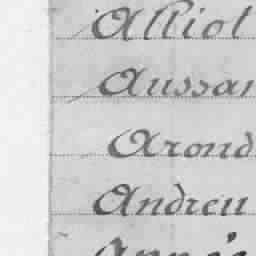 Alliol
Aussan
Arond
Andreu